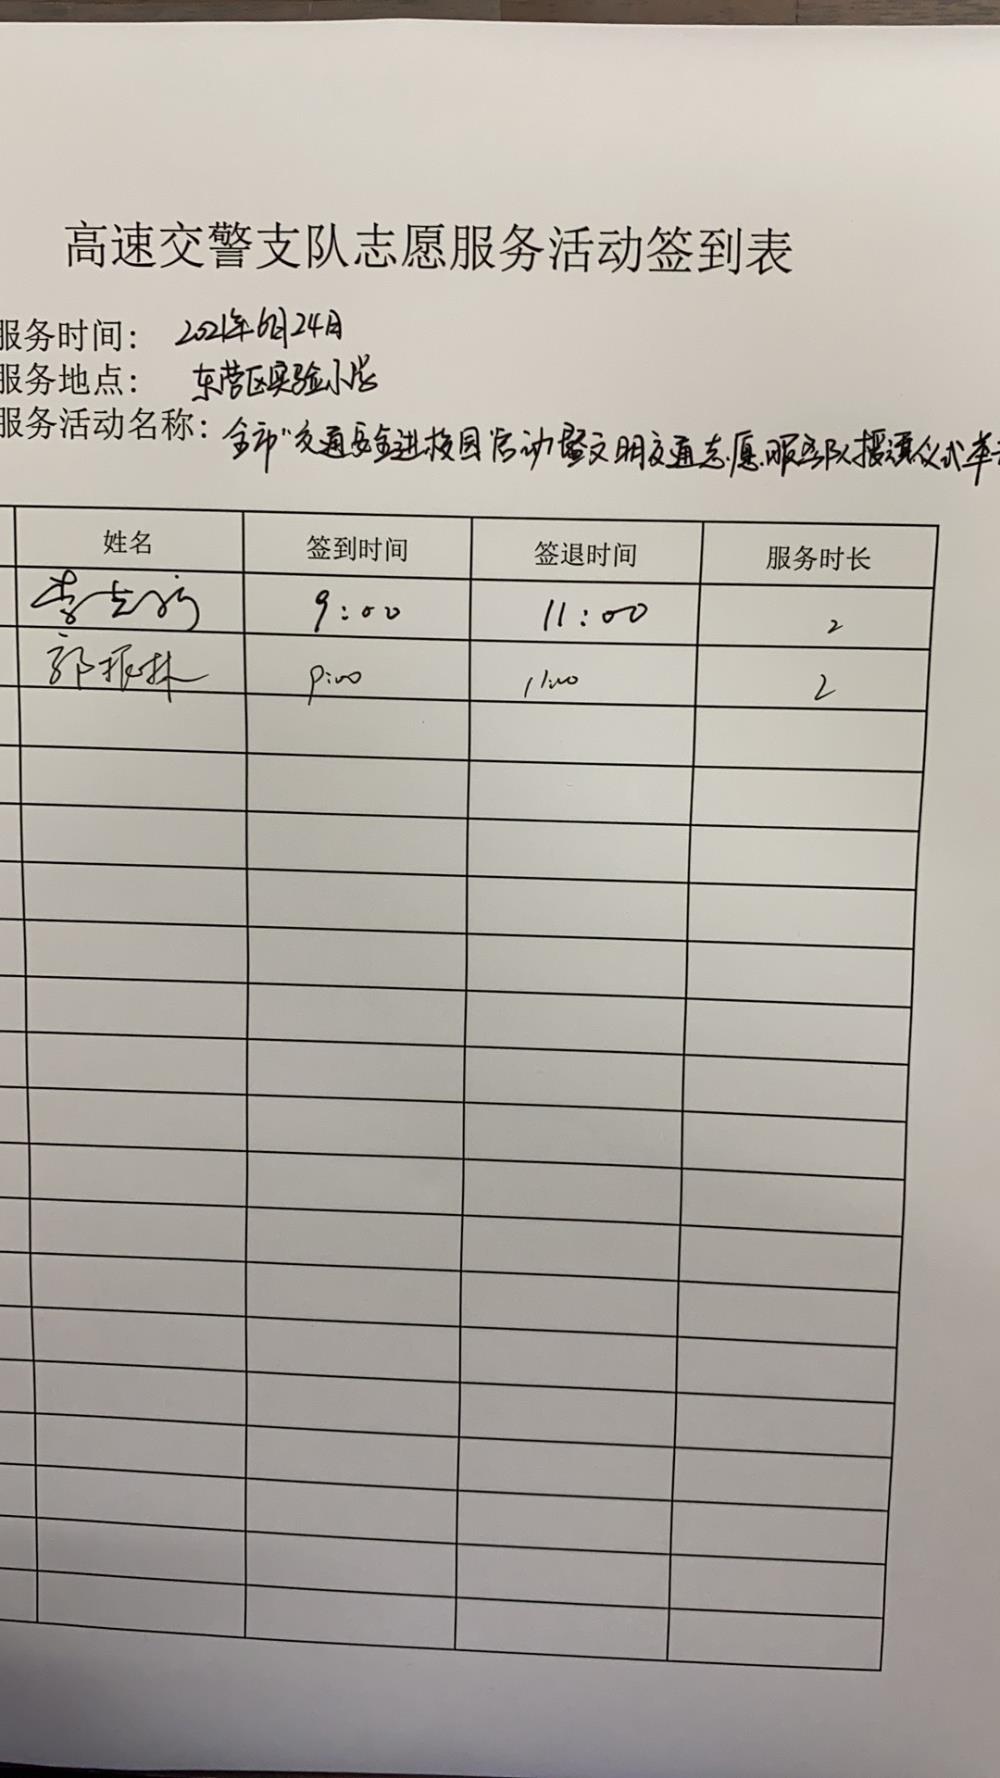 高速交警支队志愿服务活动签到表
服务时间： 2021年6月24日
服务地点： 东营区实验小学
服务活动名称： 全市"交通安全进校园"启动暨文明交通志愿服务队授旗仪式
姓名 签到时间 签退时间 服务时长
9:00 11:00 2
郭振林 9:00 11:00 2